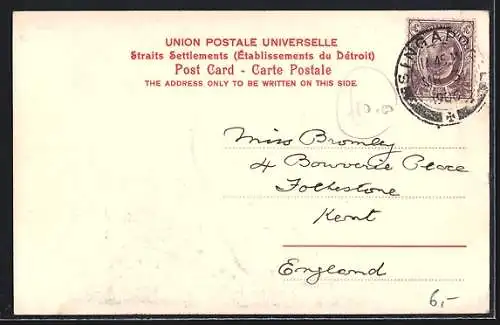 UNION POSTALE UNIVERSELLE
Straits Settlements (Établissements du Détroit)
Post Card - Carte Postale
THE ADDRESS ONLY TO BE WRITTEN ON THIS SIDE.
SINGAPO
Miss Bromley
4 Bouverie Place
Folkestone
Kent
England
6,-